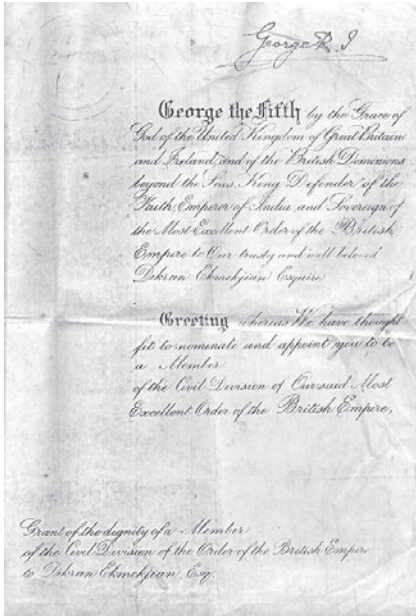 George R. I.
George the Fifth by the Grace of
God of the United Kingdom of Great Britain
and Ireland, and of the British Dominions
beyond the Seas, King, Defender of the
Faith, Emperor of India and Sovereign of
the Most Excellent Order of the British
Empire to Our trusty and well beloved
Dikran Ekmekjian Esquire
Greeting whereas We have thought
fit to nominate and appoint you to be
a Member
of the Civil Division of Our said Most
Excellent Order of the British Empire,
Grant of the dignity of a Member
of the Civil Division of the Order of the British Empire
to Dikran Ekmekjian, Esq.